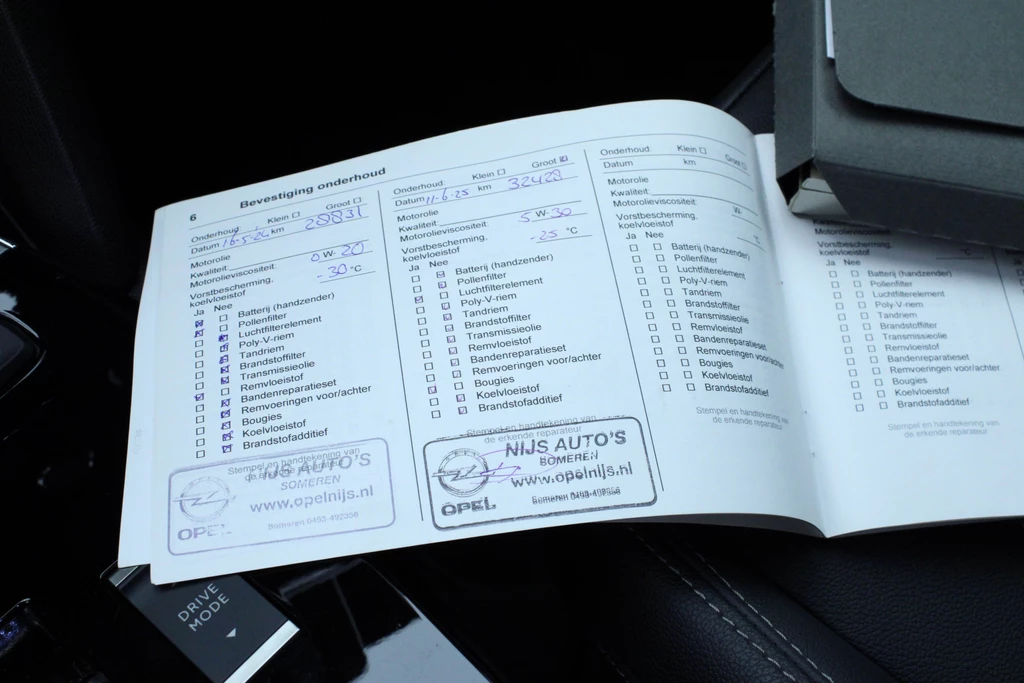 6 Bevestiging onderhoud
Onderhoud: Klein Groot
Datum 16-5-24 km 20831
Motorolie
Kwaliteit:
Motorolieviscositeit: 0 W- 20
Vorstbescherming, koelvloeistof -30 °C
Ja Nee
Batterij (handzender)
Pollenfilter
Luchtfilterelement
Poly-V-riem
Tandriem
Brandstoffilter
Transmissieolie
Remvloeistof
Bandenreparatieset
Remvoeringen voor/achter
Bougies
Koelvloeistof
Brandstofadditief
Stempel en handtekening van
de erkende reparateur
NIJS AUTO'S
SOMEREN
www.opelnijs.nl
OPEL
Someren 0493-492356
Onderhoud: Klein Groot
Datum 11-6-25 km 32428
Motorolie
Kwaliteit:
Motorolieviscositeit: 5 W- 30
Vorstbescherming,
koelvloeistof -25 °C
Ja Nee
Batterij (handzender)
Pollenfilter
Luchtfilterelement
Poly-V-riem
Tandriem
Brandstoffilter
Transmissieolie
Remvloeistof
Bandenreparatieset
Remvoeringen voor/achter
Bougies
Koelvloeistof
Brandstofadditief
Stempel en handtekening van
de erkende reparateur
NIJS AUTO'S
SOMEREN
www.opelnijs.nl
OPEL
Someren 0493-492356
Onderhoud: Klein Groot
Datum km
Motorolie
Kwaliteit:
Motorolieviscositeit: W-
Vorstbescherming,
koelvloeistof °C
Ja Nee
Batterij (handzender)
Pollenfilter
Luchtfilterelement
Poly-V-riem
Tandriem
Brandstoffilter
Transmissieolie
Remvloeistof
Bandenreparatieset
Remvoeringen voor/achter
Bougies
Koelvloeistof
Brandstofadditief
Stempel en handtekening van
de erkende reparateur
Motorolieviscositeit:
Vorstbescherming,
koelvloeistof
Ja Nee
Batterij (handzender)
Pollenfilter
Luchtfilterelement
Poly-V-riem
Tandriem
Brandstoffilter
Transmissieolie
Remvloeistof
Bandenreparatieset
Remvoeringen voor/achter
Bougies
Koelvloeistof
Brandstofadditief
Stempel en handtekening van
de erkende reparateur
DRIVE
MODE